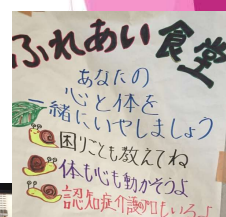 ふれあい食堂
あなたの
心と体を
一緒にいやしましょう
困りごとも教えてね
体も心も動かそうよ
認知症介護の